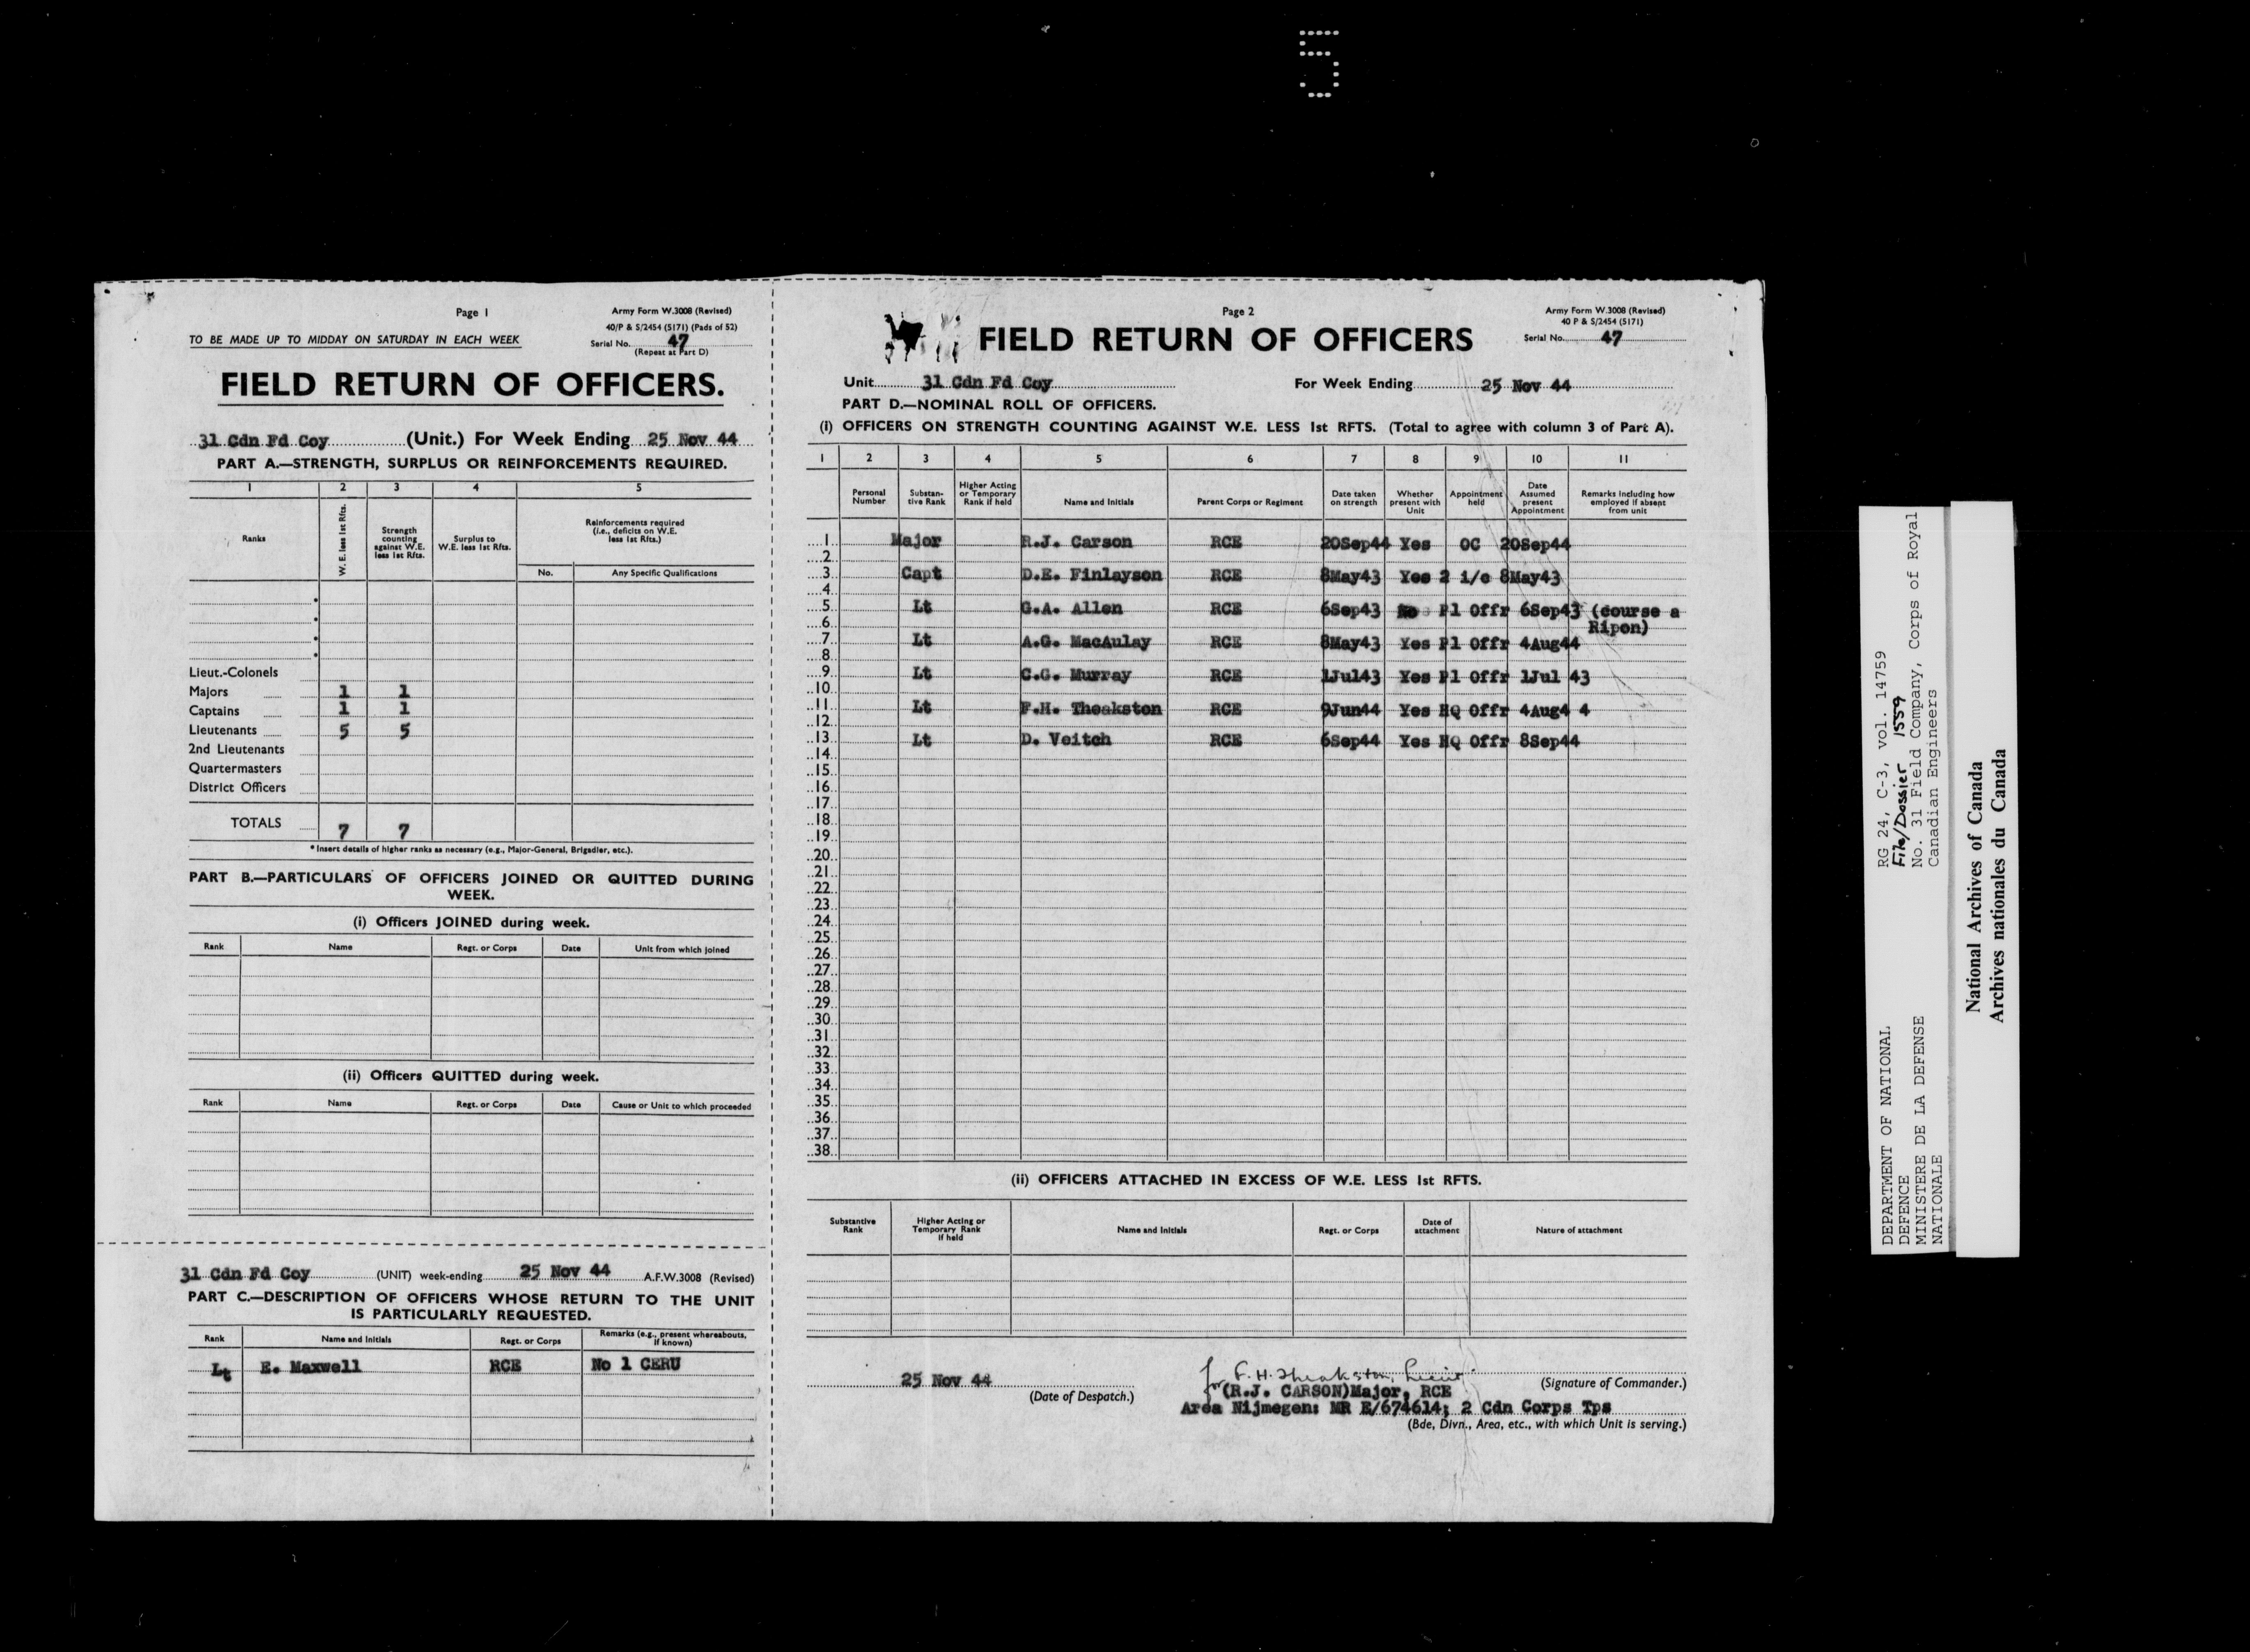 5
Page 1
Army Form W.3008 (Revised)
40/P & S/2454 (5171) (Pads of 52)
TO BE MADE UP TO MIDDAY ON SATURDAY IN EACH WEEK
Serial No. 47
(Repeat at Part D)
FIELD RETURN OF OFFICERS.
31 Cdn Fd Coy (Unit.) For Week Ending 25 Nov 44
PART A.—STRENGTH, SURPLUS OR REINFORCEMENTS REQUIRED.
1 2 3 4 5
Ranks
W. E. less 1st Rfts.
Strength counting against W.E. less 1st Rfts.
Surplus to W.E. less 1st Rfts.
Reinforcements required (i.e., deficits on W.E. less 1st Rfts.)
No. Any Specific Qualifications
Lieut.-Colonels
Majors 1 1
Captains 1 1
Lieutenants 5 5
2nd Lieutenants
Quartermasters
District Officers
TOTALS 7 7
* Insert details of higher ranks as necessary (e.g., Major-General, Brigadier, etc.).
PART B.—PARTICULARS OF OFFICERS JOINED OR QUITTED DURING
WEEK.
(i) Officers JOINED during week.
Rank Name Regt. or Corps Date Unit from which joined
(ii) Officers QUITTED during week.
Rank Name Regt. or Corps Date Cause or Unit to which proceeded
31 Cdn Fd Coy (UNIT) week-ending 25 Nov 44 A.F.W.3008 (Revised)
PART C.—DESCRIPTION OF OFFICERS WHOSE RETURN TO THE UNIT
IS PARTICULARLY REQUESTED.
Rank Name and Initials Regt. or Corps Remarks (e.g., present whereabouts, if known)
Lt E. Maxwell RCE No 1 CERU
Page 2
Army Form W.3008 (Revised)
40 P & S/2454 (5171)
Serial No. 47
FIELD RETURN OF OFFICERS
Unit 31 Cdn Fd Coy For Week Ending 25 Nov 44
PART D.—NOMINAL ROLL OF OFFICERS.
(i) OFFICERS ON STRENGTH COUNTING AGAINST W.E. LESS 1st RFTS. (Total to agree with column 3 of Part A).
1 2 3 4 5 6 7 8 9 10 11
Personal Number
Substan-tive Rank
Higher Acting or Temporary Rank if held
Name and Initials
Parent Corps or Regiment
Date taken on strength
Whether present with Unit
Appointment held
Date Assumed present Appointment
Remarks including how employed if absent from unit
1 Major R.J. Carson RCE 20Sep44 Yes OC 20Sep44
2
3 Capt D.E. Finlayson RCE 8May43 Yes 2 i/c 8May43
4
5 Lt G.A. Allen RCE 6Sep43 No Pl Offr 6Sep43 (course a
6 Ripon)
7 Lt A.G. MacAulay RCE 8May43 Yes Pl Offr 4Aug44
8
9 Lt C.G. Murray RCE 1Jul43 Yes Pl Offr 1Jul 43
10
11 Lt F.H. Theakston RCE 9Jun44 Yes HQ Offr 4Aug4 4
12
13 Lt D. Veitch RCE 6Sep44 Yes HQ Offr 8Sep44
14
15
16
17
18
19
20
21
22
23
24
25
26
27
28
29
30
31
32
33
34
35
36
37
38
(ii) OFFICERS ATTACHED IN EXCESS OF W.E. LESS 1st RFTS.
Substantive Rank
Higher Acting or Temporary Rank if held
Name and Initials
Regt. or Corps
Date of attachment
Nature of attachment
F.H. Theakston,
25 Nov 44 (Signature of Commander.)
(Date of Despatch.) for (R.J. CARSON)Major, RCE
Area Nijmegen: MR E/674614; 2 Cdn Corps Tps
(Bde, Divn., Area, etc., with which Unit is serving.)
DEPARTMENT OF NATIONAL
DEFENCE
MINISTERE DE LA DEFENSE
NATIONALE
RG 24, C-3, vol. 14759
File/Dossier 1559
No. 31 Field Company, Corps of Royal
Canadian Engineers
National Archives of Canada
Archives nationales du Canada